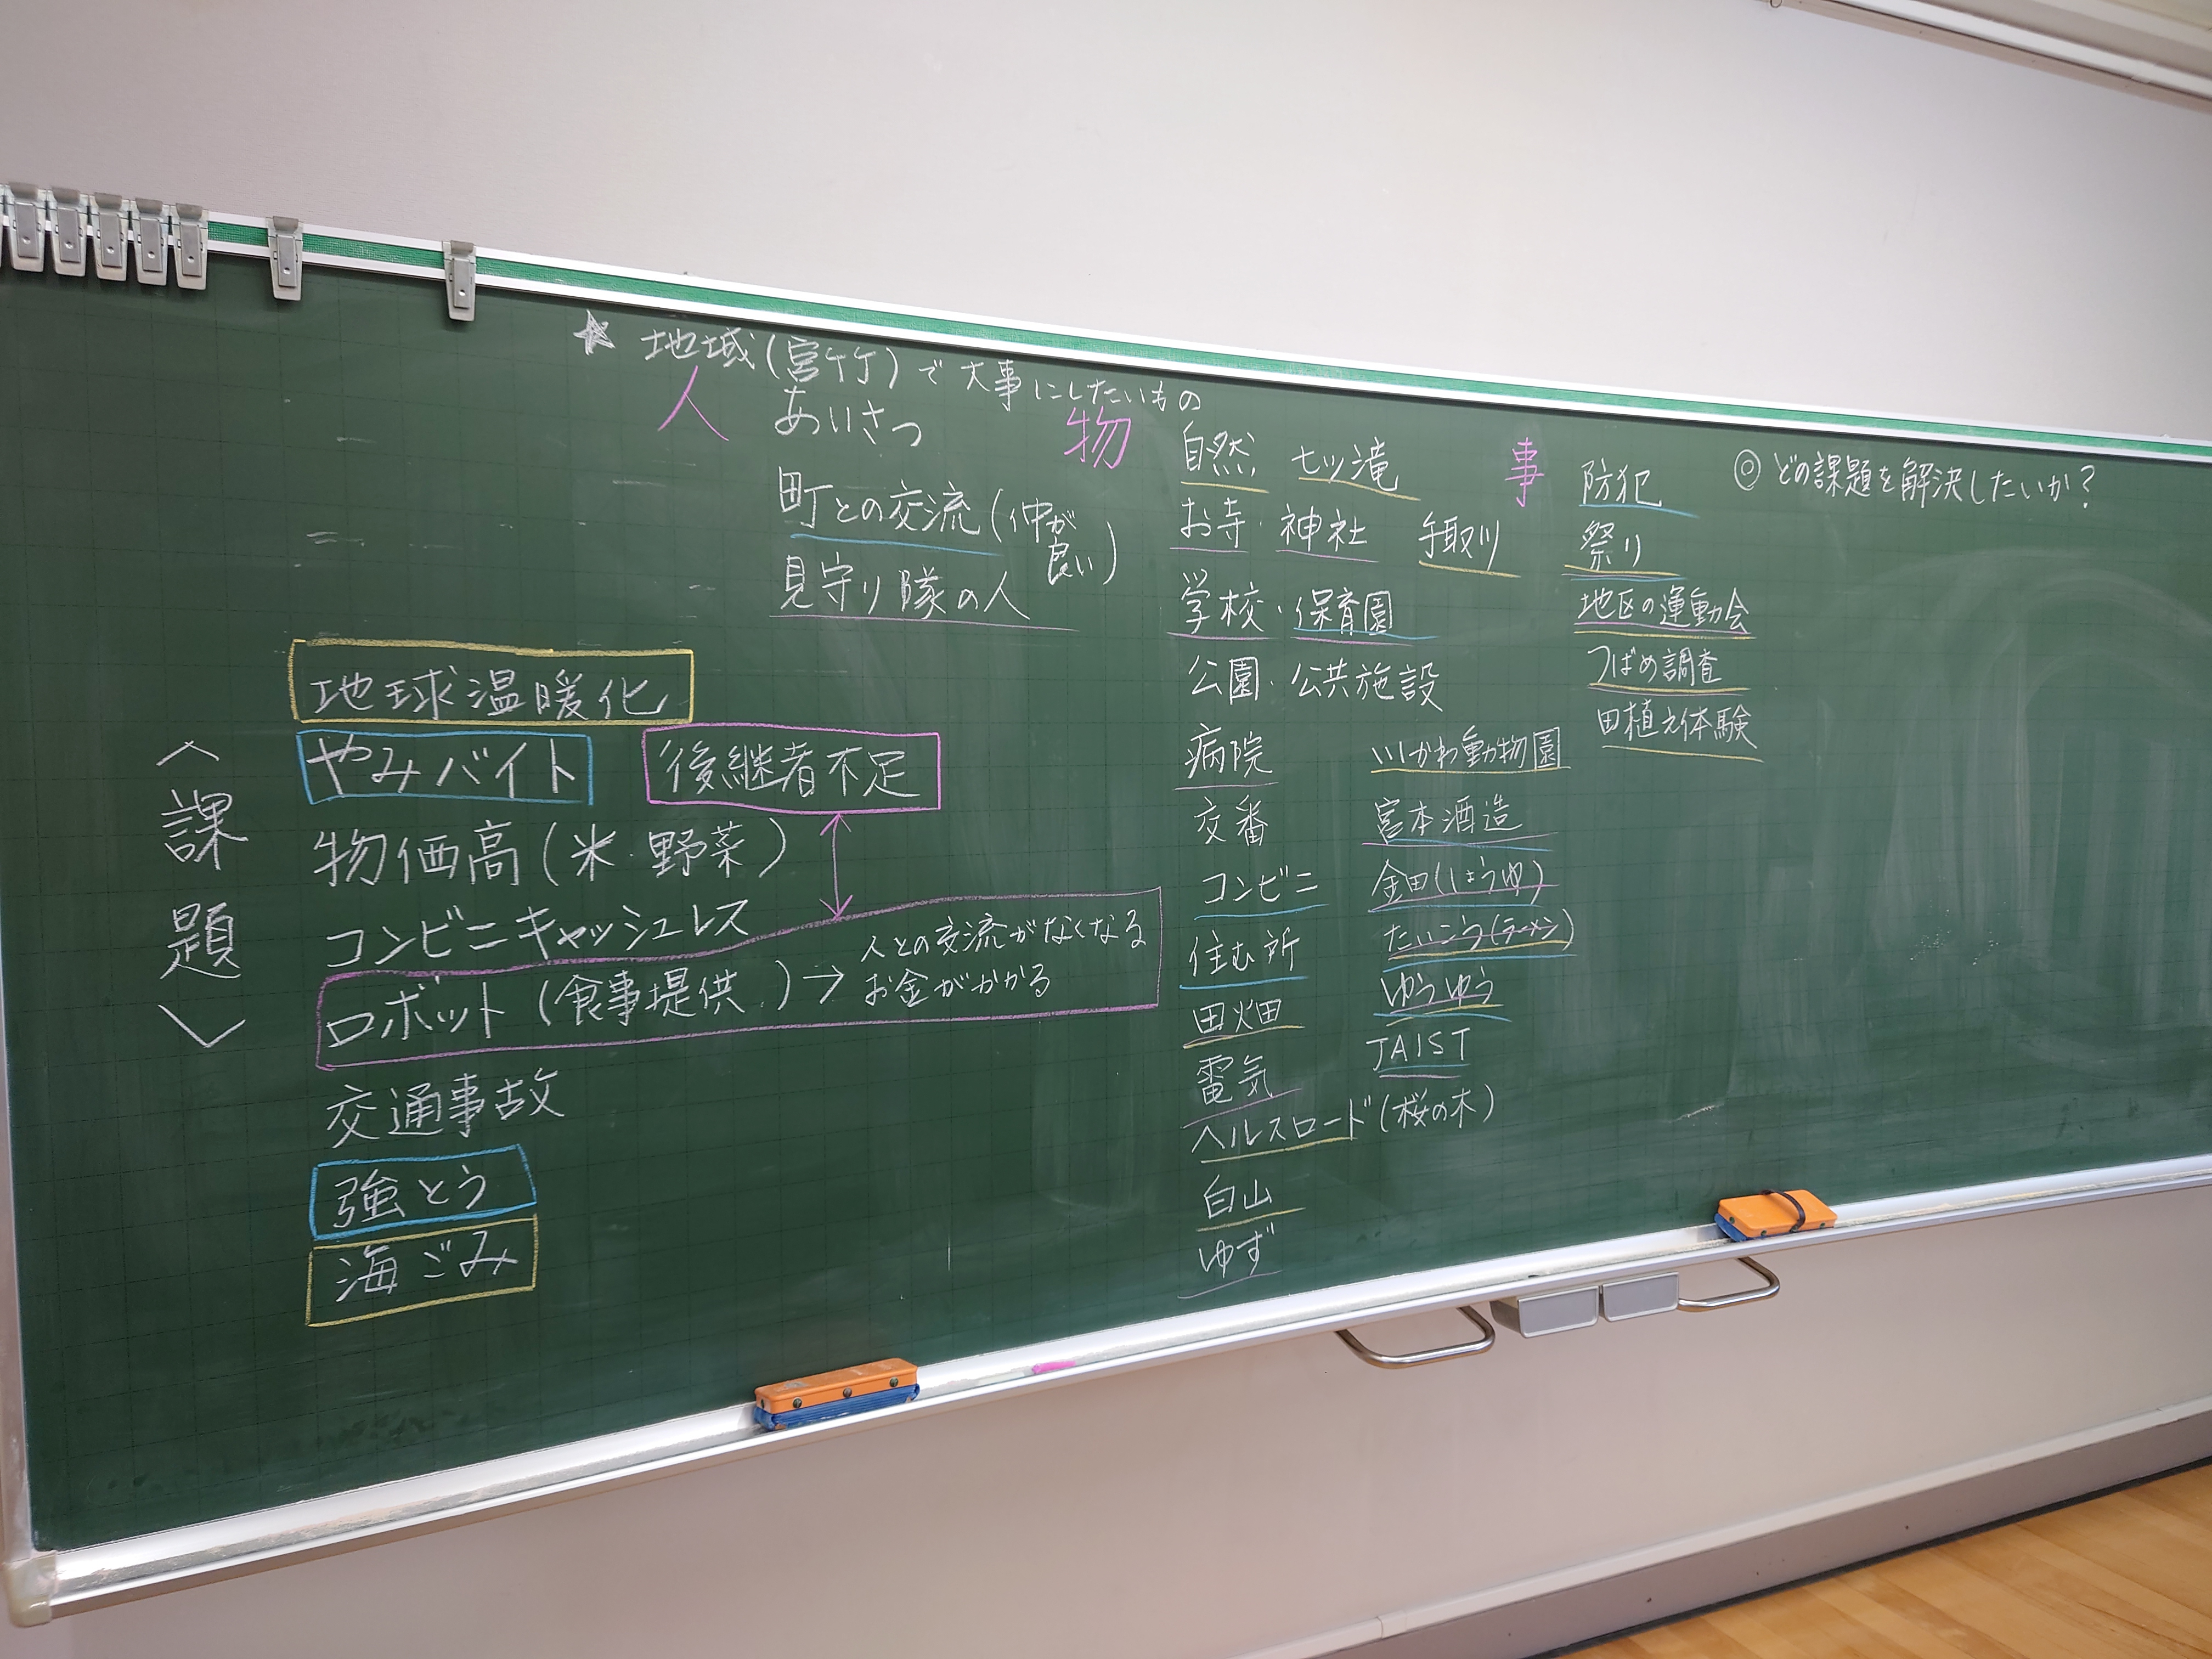 ★ 地域(宮竹)で大事にしたいもの
人
あいさつ
町との交流(仲が良い)
見守り隊の人
物
自然 七ッ滝
お寺・神社 手取川
学校・保育園
公園・公共施設
病院
交番
コンビニ
住む所
田畑
電気
ヘルスロード(桜の木)
白山
ゆず
いしかわ動物園
宮本酒造
金田(しょうゆ)
たいこう(ラーメン)
ゆうゆう
JAIST
事
防犯
祭り
地区の運動会
つばめ調査
田植え体験
◎ どの課題を解決したいか?
〈課題〉
地球温暖化
やみバイト 後継者不足
物価高(米・野菜)
コンビニキャッシュレス
ロボット(食事提供)→ 人との交流がなくなる
お金がかかる
交通事故
強とう
海ごみ